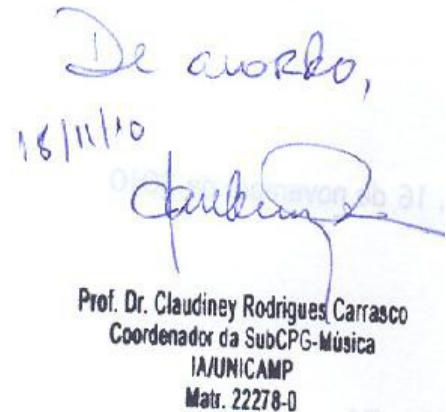 De acordo,
18/11/10
Prof. Dr. Claudiney Rodrigues Carrasco
Coordenador da SubCPG-Música
IA/UNICAMP
Matr. 22278-0